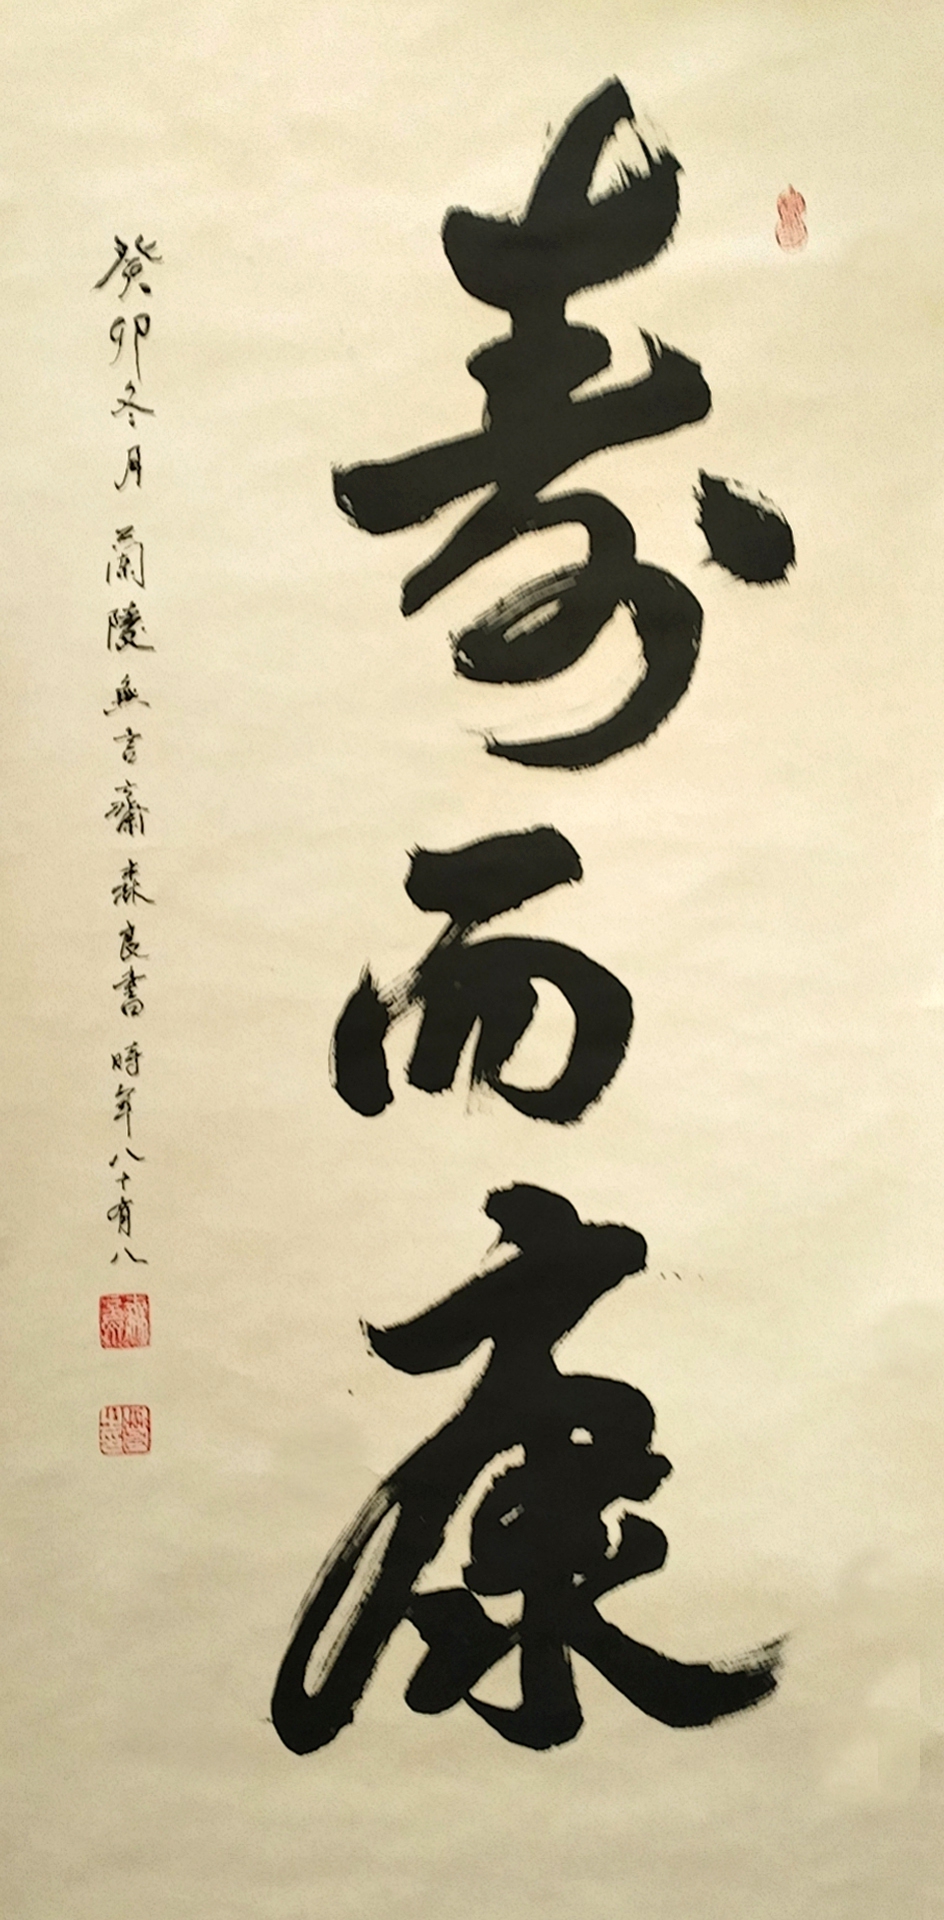 壽而康
癸卯冬月蘭陵無言齋森良書時年八十有八